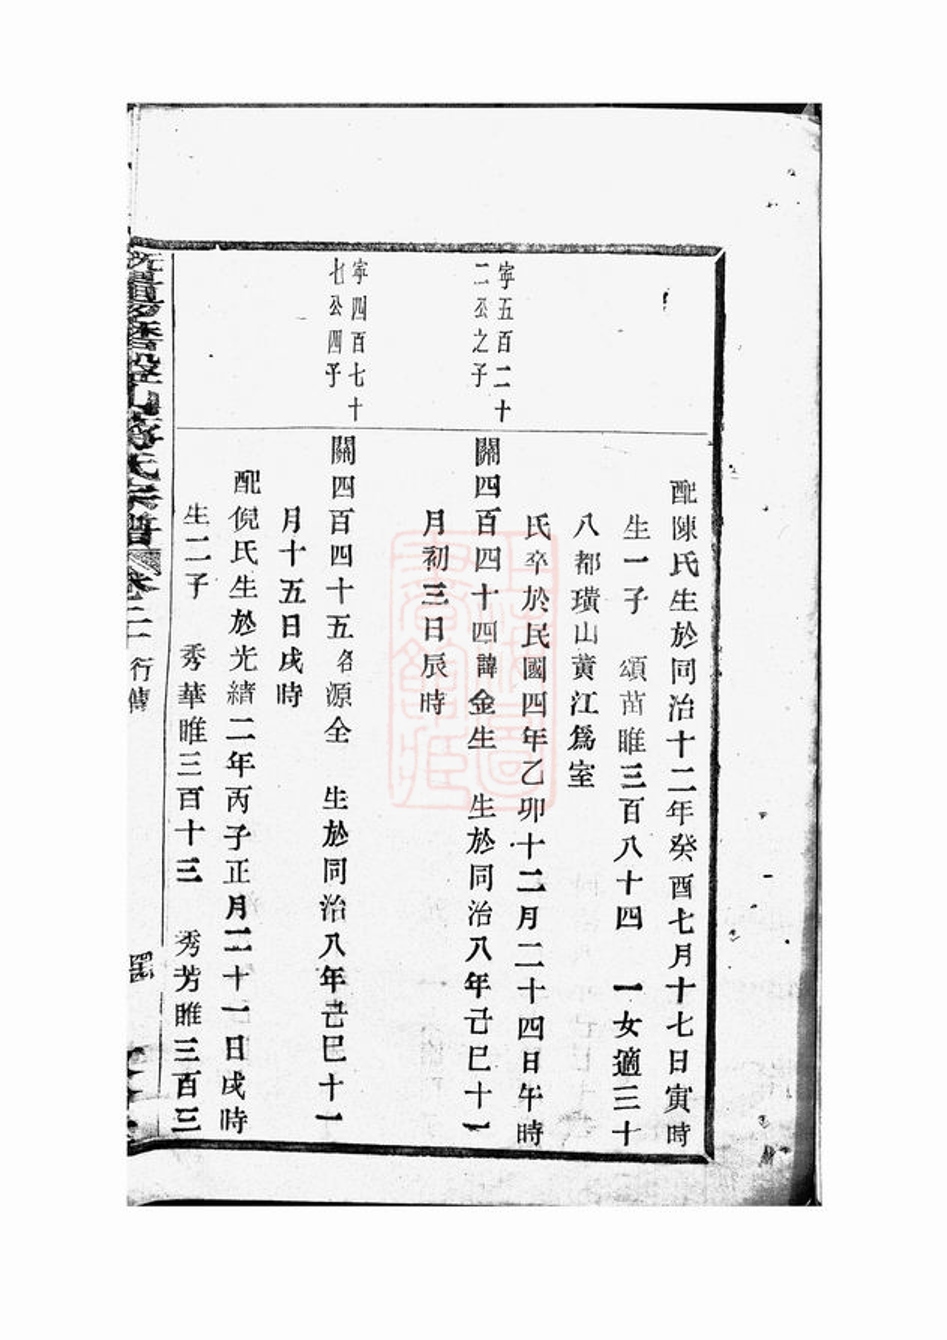 配陳氏生於同治十二年癸酉七月十七日寅時
生一子 頌苗睢三百八十四 一女適三十
八都璜山黄江爲室
氏卒於民國四年乙卯十二月二十四日午時
寜五百二十
二公之子
關四百四十四諱金生 生於同治八年己巳十一
月初三日辰時
寜四百七十
七公四子
關四百四十五名源全 生於同治八年己巳十一
月十五日戌時
配倪氏生於光緒二年丙子正月二十一日戌時
生二子 秀華睢三百十三 秀芳睢三百三
氏宗譜 卷二 行傳